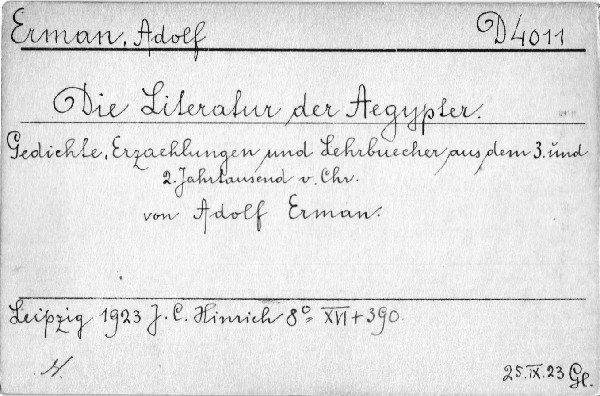 Erman, Adolf D4011
Die Literatur der Aegypter.
Gedichte, Erzaehlungen und Lehrbuecher aus dem 3. und
2. Jahrtausend v. Chr.
von Adolf Erman.
Leipzig 1923 J. C. Hinrich 8º XVI + 390.
H.
25.IX.23 Gl.